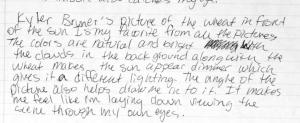 Kyler Bruner's picture of the wheat in front
of the sun is my favorite from all the pictures.
The colors are natural and bright with
the clouds in the background along with the
wheat makes the sun appear dimmer which
gives it a different lighting. The angle of the
picture also helps draw me in to it. It makes
me feel like I'm laying down viewing the
scene through my own eyes.